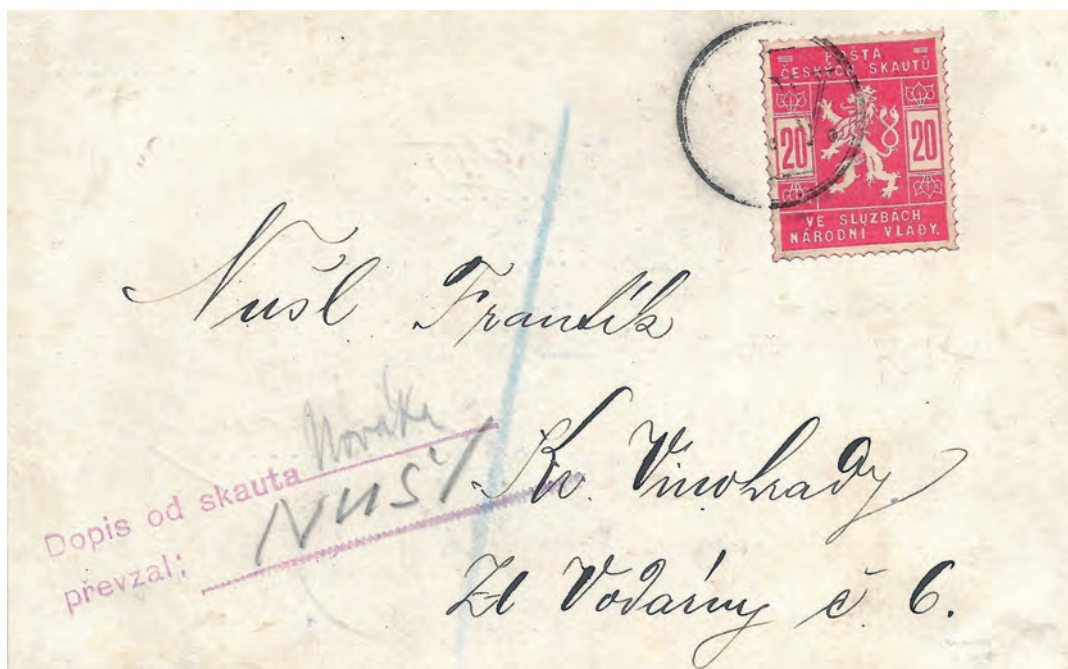 POŠTA
ČESKÝCH SKAUTŮ
20 20
VE SLUŽBÁCH
NÁRODNÍ VLÁDY.
Nušl Frantík
Kr. Vinohrady
Zd Vodárny č 6.
Dopis od skauta Nováka
převzal: Nušl